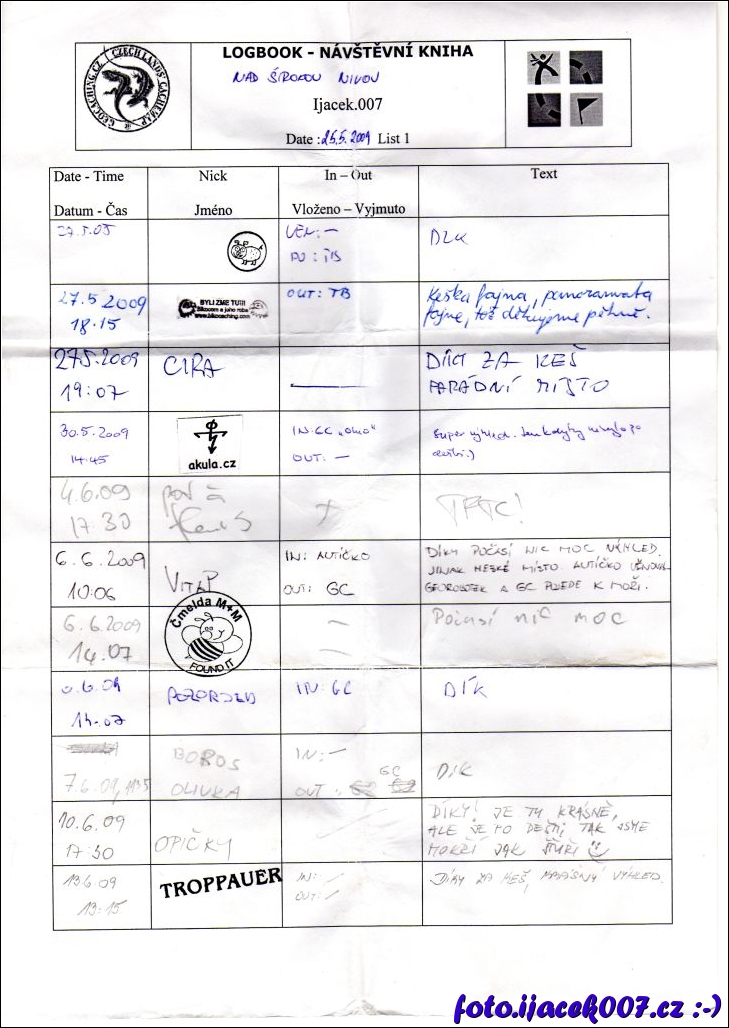 GEOCACHING.CZ CZECH LANDS' CACHEMAP
LOGBOOK - NÁVŠTĚVNÍ KNIHA
NAD ŠIROKOU NIVOU
Ijacek.007
Date : 25.5.2009 List 1
Date - Time Nick In – Out Text
Datum - Čas Jméno Vloženo – Vyjmuto
DÍK
27.5 2009 BYLI ZME TU!!! OUT: TB Keška fajna, panoramata
18.15 fajne, tož děkujeme pěkně.
www.bikocaching.com
27.5.2009 CIRA DÍKY ZA KEŠ
19:07 PARÁDNÍ MÍSTO
30.5.2009 IN: GC
14:45 akula.cz OUT: –
4.6.09
17 30 TFTC!
6.6.2009 IN: AUTÍČKO DÍKY POČASÍ NIC MOC VÝHLED.
JINAK HESKÉ MÍSTO. AUTÍČKO
10:06 VITAP OUT: GC A GC POJEDE K MOŘI.
6.6.2009 Čmelda M+M – Počasí nic moc
14.07 FOUND IT –
6.6.09 IN: GC DÍK
14.07
BOROS IN: –
7.6.09, OLIVKA OUT: GC DÍK
10.6.09 DÍKY! JE TU KRÁSNĚ,
ALE JE PO DEŠTI, TAK JSME
17:30 OPIČKY MOKŘÍ JAK
13.6.09 TROPPAUER IN: / DÍKY ZA KEŠ, KRÁSNÝ VÝHLED.
13:15 OUT: /
foto.ijacek007.cz :-)